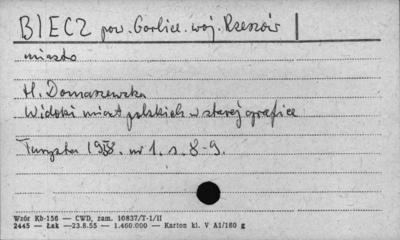 BIECZ pow. Gorlice. woj. Rzeszów
miasto
H. Domaszewska
Widoki miast polskich w starej grafice
Turysta 1958. nr 1. s. 8-9.
Wzór Kb-156 — CWD, zam. 10837/T-1/II
2445 — Łak —23.8.55 — 1.460.000 — Karton kl. V A1/180 g